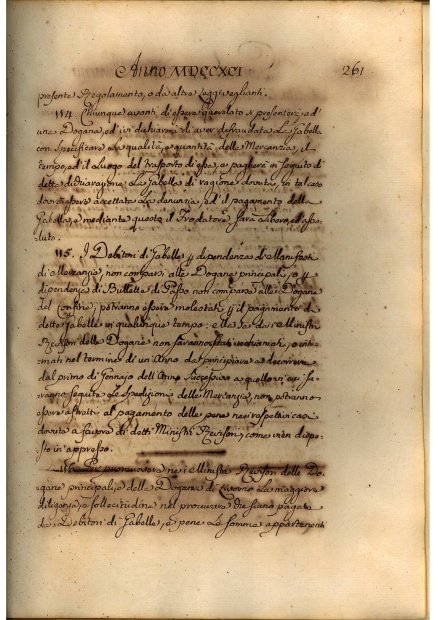 Anno MDCCXCI 261
presente Regolamento, o da altre Leggi veglianti.
114. Chiunque avanti di essere querelato si presenterà ad
una Dogana, ed ivi dichiarerà di aver defraudata la Gabella
con specificare la qualità, e quantità delle Mercanzie, il
tempo, ed il Luogo del trasporto di esse, e pagherà in seguito di
detta dichiarazione la Gabella di ragione dovuta, in tal caso
dovrà essere accettata la denunzia, ed il pagamento della
Gabella, e mediante questo il Frodatore sarà libero, ed asso-
luto.
115. I Debitori di Gabelle p dipendenza di Manifesti
di Mercanzie, non comparsi alle Dogane principali, o p
dipendenza di Bullette di Passo non comparse alle Dogane
del Confine, potranno essere molestati p il pagamento di
dette Gabelle in qualunque tempo: Ma se dai Ministri
Revisori delle Dogane non saranno stati richiamati, o inti-
mati nel termine di un Anno da principiare a decorrere
dal primo di Gennajo dell'Anno successivo a quello in cui sa-
ranno seguite le Spedizioni delle Mercanzie, non potranno
essere astretti al pagamento delle pene nei rispettivi casi
dovute a favore di detti Ministri Revisori, come vien dispo-
sto in appresso.
116. Per promuovere nei Ministri Revisori delle Do-
gane principali, e della Dogana di Livorno la maggiore
diligenza, e sollecitudine nel procurare che siano pagate
da Debitori di Gabelle, e pene le somme appartenenti